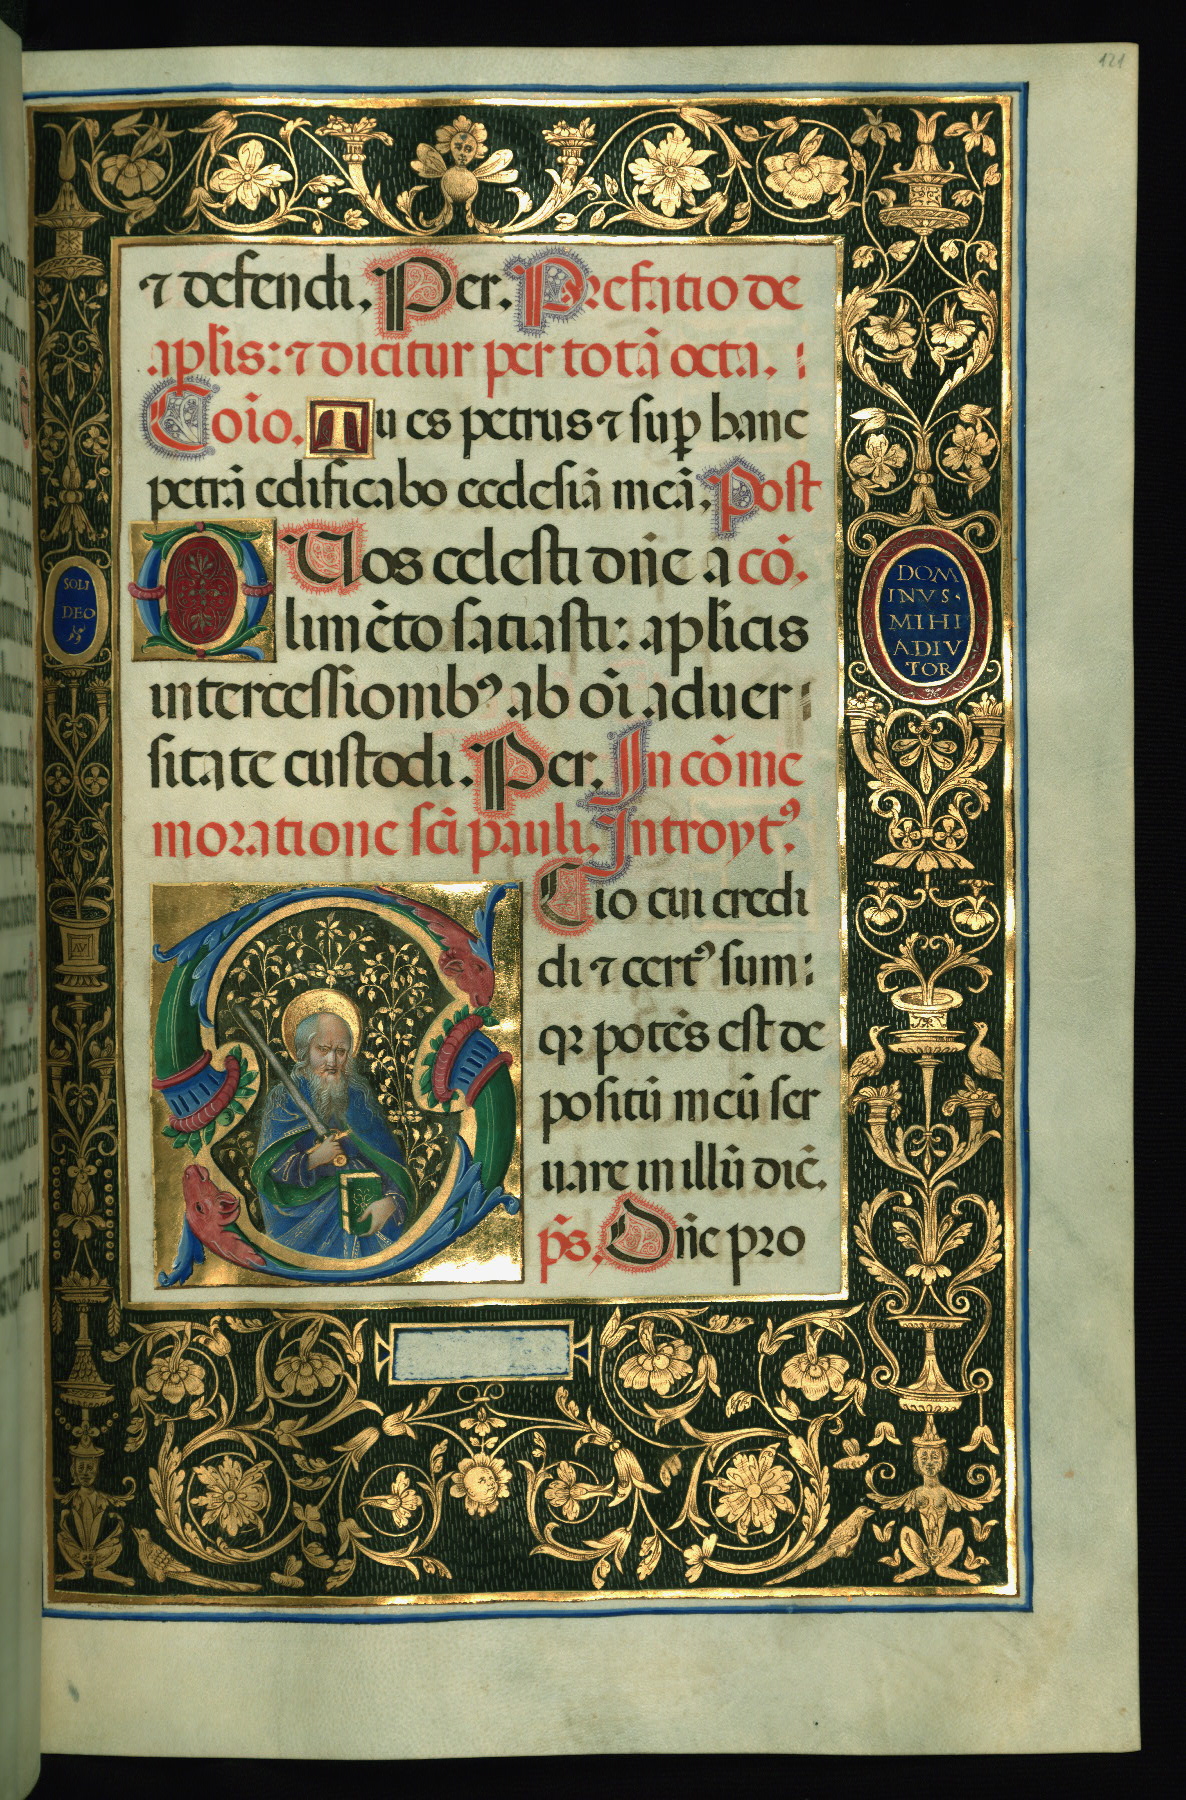 121
⁊ defendi. Per. Prefatio de
aplis: ⁊ dicitur per totā octa.
Coīo. Tu es petrus ⁊ sup hanc
petrā edificabo ecclesiā meā, Post
Quos celesti dn̄e a cō.
limēto satiasti: aplicis
intercessionibꝰ ab oī aduer
sitate custodi. Per. In cōme
moratione sc̄i pauli. Introytꝰ.
Scio cui credi
di ⁊ certꝰ sum:
qꝛ potēs est de
positū meū ser
uare in illū diē.
p̄s. Dn̄e pro
SOLI
DEO
DOM
INVS·
MIHI
ADIV
TOR